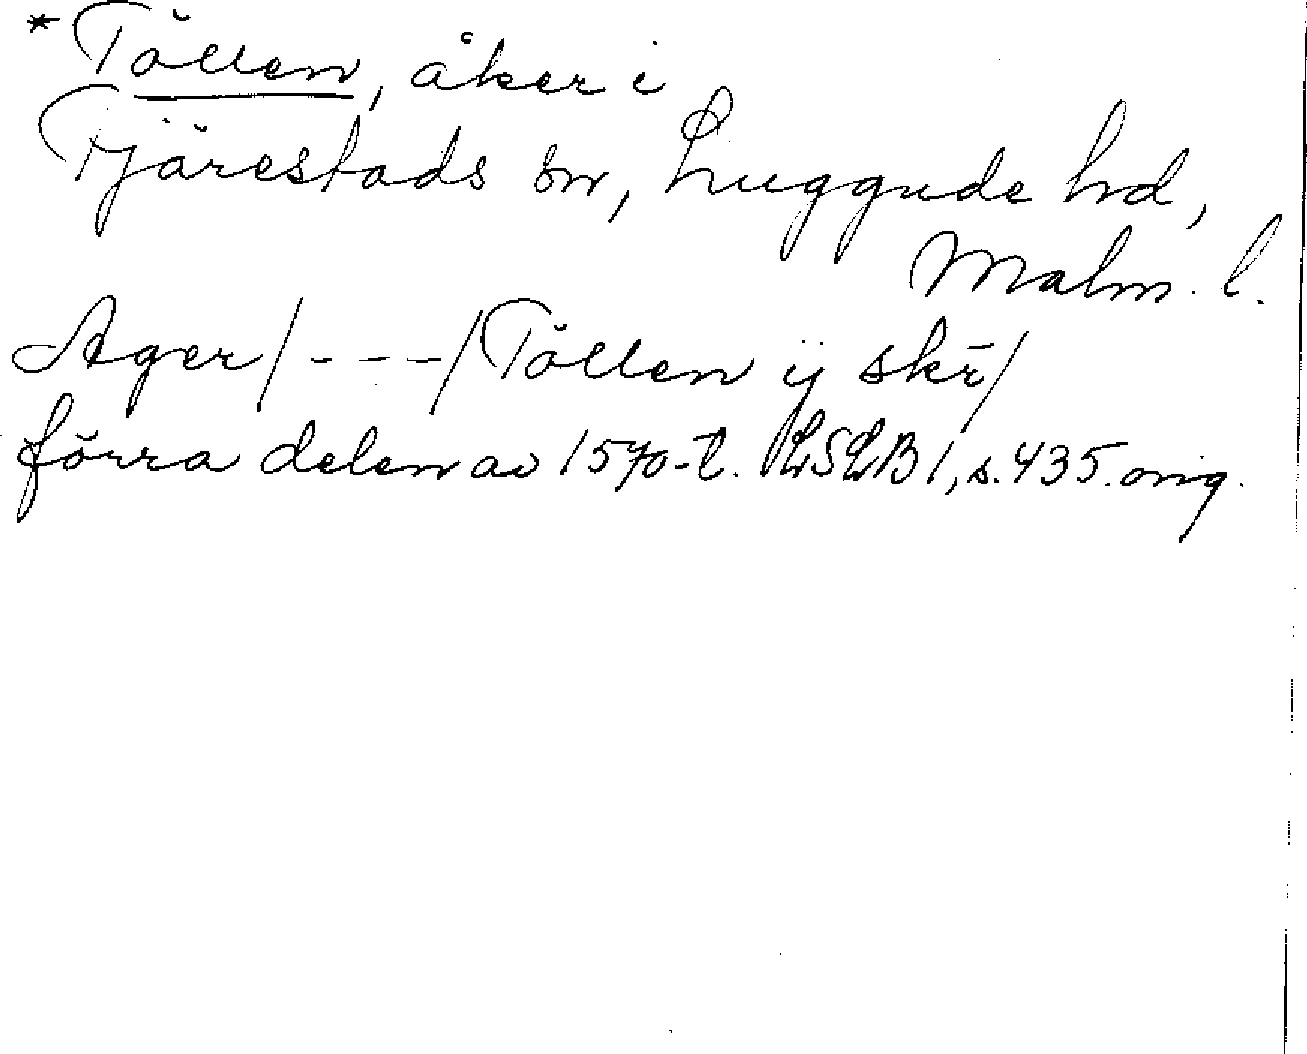 * Töllen, åker i
Tjärestads sn, Luggude hd,
Malm. l.
Ager/ - - - /Töllen ij skr/
förra delen av 1570-t. LSLB 1, s. 435. orig.